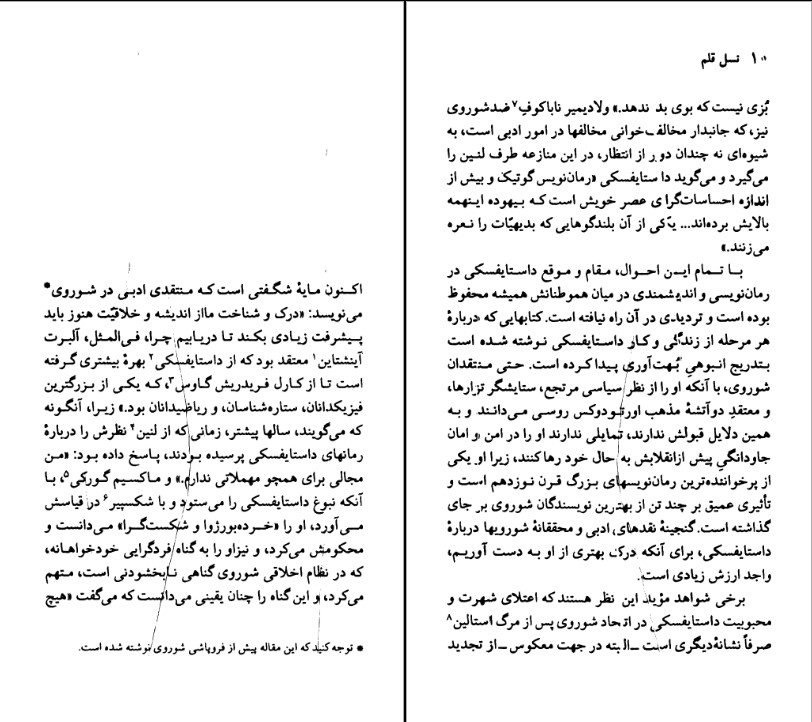 اکنون مایهٔ شگفتی است که منتقدی ادبی در شوروی*
می‌نویسد: «درک و شناخت ما از اندیشه و خلاقیّت هنوز باید
پیشرفت زیادی بکند تا دریابیم چرا، فی‌المثل، آلبرت
آینشتاین۱ معتقد بود که از داستایفسکی۲ بهرهٔ بیشتری گرفته
است تا از کارل فریدریش گاوس۳، که یکی از بزرگترین
فیزیکدانان، ستاره‌شناسان، و ریاضیدانان بود.» زیرا، آنگونه
که می‌گویند، سالها پیشتر، زمانی که از لنین۴ نظرش را دربارهٔ
رمانهای داستایفسکی پرسیده بودند، پاسخ داده بود: «من
مجالی برای همچو مهملاتی ندارم.» و ماکسیم گورکی۵، با
آنکه نبوغ داستایفسکی را می‌ستود و با شکسپیر۶ در قیاسش
می‌آورد، او را «خرده‌بورژوا و شکست‌گرا» می‌دانست و
محکومش می‌کرد، و نیز او را به گناه فردگرایی خودخواهانه،
که در نظام اخلاقی شوروی گناهی نابخشودنی است، متهم
می‌کرد، و این گناه را چنان یقینی می‌دانست که می‌گفت «هیچ
* توجه کنید که این مقاله پیش از فروپاشی شوروی نوشته شده است.
۱۰ نسل قلم
بُزی نیست که بوی بد ندهد.» ولادیمیر ناباکوفِ۷ ضدشوروی
نیز، که جانبدار مخالف‌خوانی مخالفها در امور ادبی است، به
شیوه‌ای نه چندان دور از انتظار، در این منازعه طرف لنین را
می‌گیرد و می‌گوید داستایفسکی «رمان‌نویس گوتیک و بیش از
اندازه احساسات‌گرای عصر خویش است که بیهوده اینهمه
بالایش برده‌اند... یکی از آن بلندگوهایی که بدیهیّات را نعره
می‌زنند.»
با تمام ایـن احوال، مقام و موقع داستایفسکی در
رمان‌نویسی و اندیشمندی در میان هموطنانش همیشه محفوظ
بوده است و تردیدی در آن راه نیافته است. کتابهایی که دربارهٔ
هر مرحله از زندگی و کار داستایفسکی نوشته شده است
بتدریج انبوهیِ بُهت‌آوری پیدا کرده است. حتی منتقدان
شوروی، با آنکه او را از نظر سیاسی مرتجع، ستایشگر تزارها،
و معتقدِ دوآتشهٔ مذهب اورتودوکس روسی می‌دانند و به
همین دلایل قبولش ندارند، تمایلی ندارند او را در امن و امان
جاودانگیِ پیش از انقلابش به حال خود رها کنند، زیرا او یکی
از پرخواننده‌ترین رمان‌نویسهای بزرگ قرن نوزدهم است و
تأثیری عمیق بر چند تن از بهترین نویسندگان شوروی بر جای
گذاشته است. گنجینهٔ نقدهای ادبی و محققانهٔ شورویها دربارهٔ
داستایفسکی، برای آنکه درک بهتری از او به دست آوریم،
واجد ارزش زیادی است.
برخی شواهد مؤید این نظر هستند که اعتلای شهرت و
محبوبیت داستایفسکی در اتحاد شوروی پس از مرگ استالین۸
صرفاً نشانهٔ دیگری است ـ البته در جهت معکوس ـ از تجدید